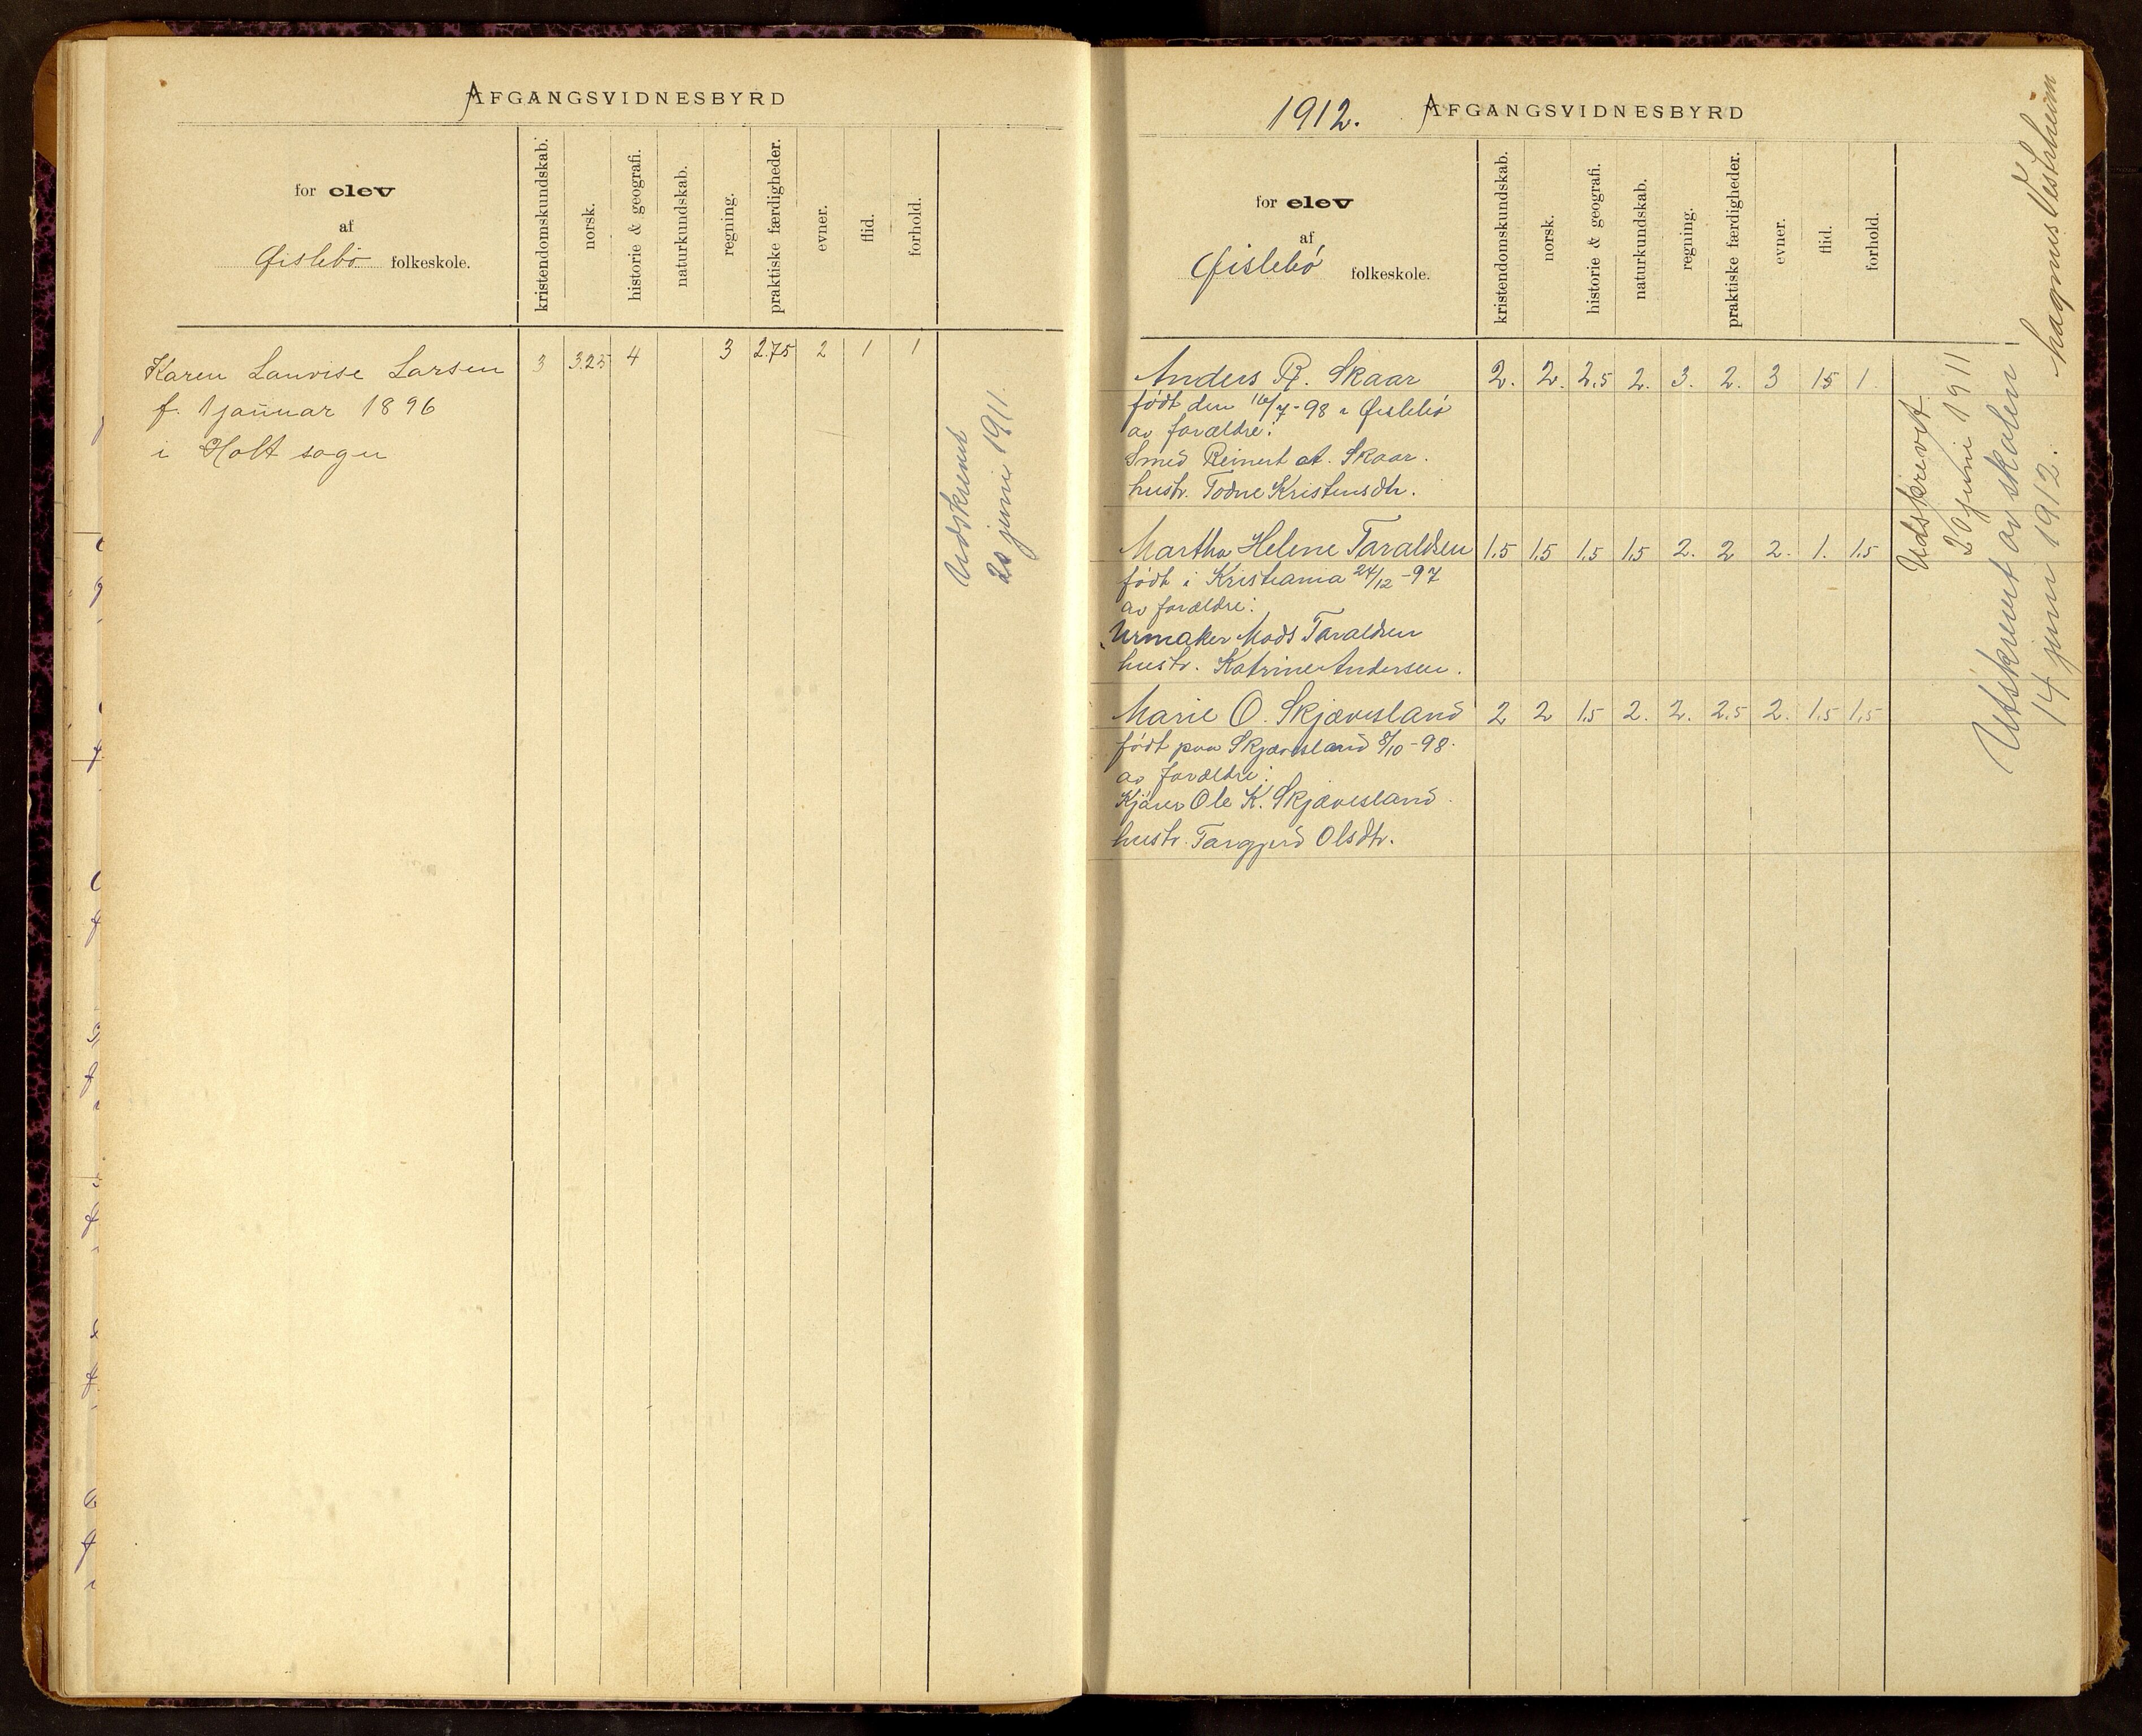 AFGANGSVIDNESBYRD
for elev
af
Øislebø folkeskole.
kristendomskundskab.
norsk.
historie & geografi.
naturkundskab.
regning.
praktiske færdigheder.
evner.
flid.
forhold.
Karen Lauvise Larsen 3 3.25 4 3 2.75 2 1 1
f. 1 januar 1896
i Holt sogn
Udskrevet
20 juni 1911.
1912. AFGANGSVIDNESBYRD
for elev
af
Øislebø folkeskole.
kristendomskundskab.
norsk.
historie & geografi.
naturkundskab.
regning.
praktiske færdigheder.
evner.
flid.
forhold.
Anders R. Skaar 2. 2. 2,5 2. 3. 2. 3 1,5 1.
født den 16/7-98 i Øislebø
av forældre:
Smed Reinert A. Skaar.
hustr. Todne Kristensdtr.
Martha Helene Taraldsen 1,5 1,5 1,5 1,5 2. 2 2. 1. 1,5
født i Kristiania 24/12-97
av forældre:
Urmaker Mads Taraldsen
hustr. Katrine Andersen.
Marie O. Skjævesland 2 2 1,5 2. 2. 2,5 2. 1,5 1,5
født paa Skjævesland 8/10-98.
av forældre:
Ole K. Skjævesland.
hustr. Targjerd Olsdtr.
Udskrevet
20 juni 1911
Utskrevet av skolen
14 juni 1912.
Magnus Vestrheim